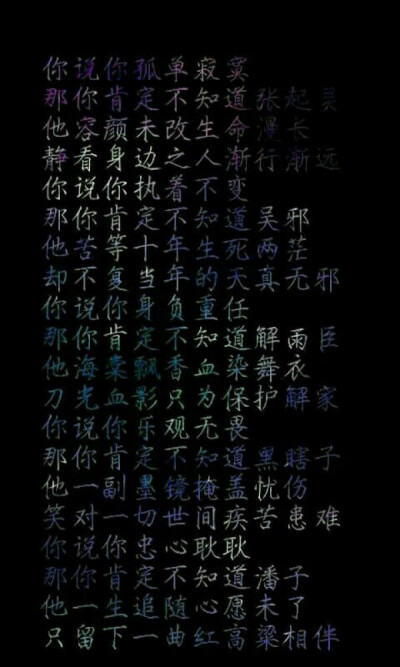 你说你孤单寂寞
那你肯定不知道张起灵
他容颜未改生命漫长
静看身边之人渐行渐远
你说你执着不变
那你肯定不知道吴邪
他苦等十年生死两茫
却不复当年的天真无邪
你说你身负重任
那你肯定不知道解雨臣
他海棠飘香血染舞衣
刀光血影只为保护解家
你说你乐观无畏
那你肯定不知道黑瞎子
他一副墨镜掩盖忧伤
笑对一切世间疾苦患难
你说你忠心耿耿
那你肯定不知道潘子
他一生追随心愿未了
只留下一曲红高粱相伴